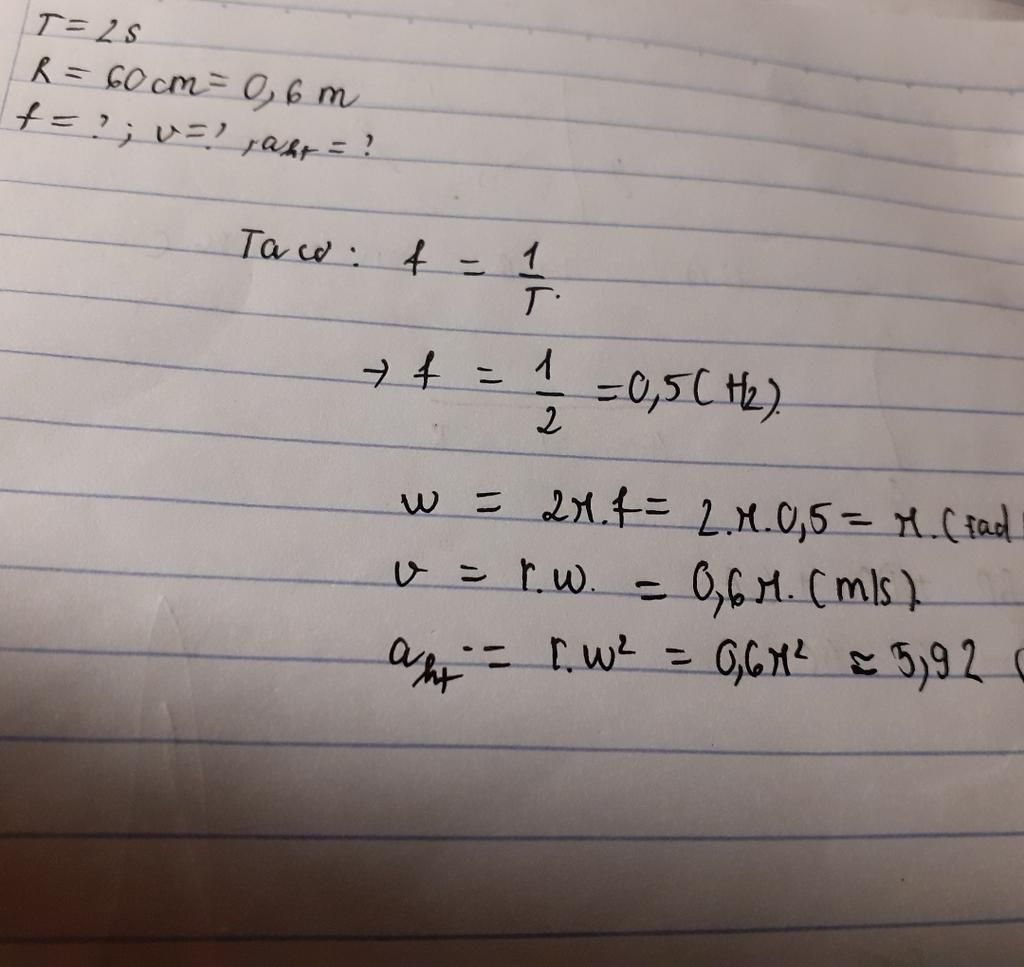 T = 2s
R = 60cm = 0,6 m
f = ? ; v = ? , aht = ?
Ta có : f = 1/T.
→ f = 1/2 = 0,5 (Hz).
w = 2π.f = 2.π.0,5 = π.(rad
v = r.w. = 0,6π. (m/s).
aht = r.w² = 0,6π² ≈ 5,92 (